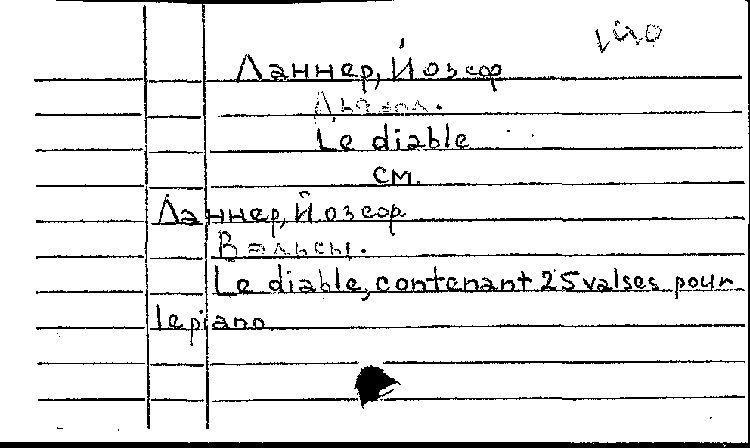 Ланнер, Йозеф
Дьявол.
Le diable
см.
Ланнер, Йозеф
Вальсы.
Le diable, contenant 25 valses pour
le piano